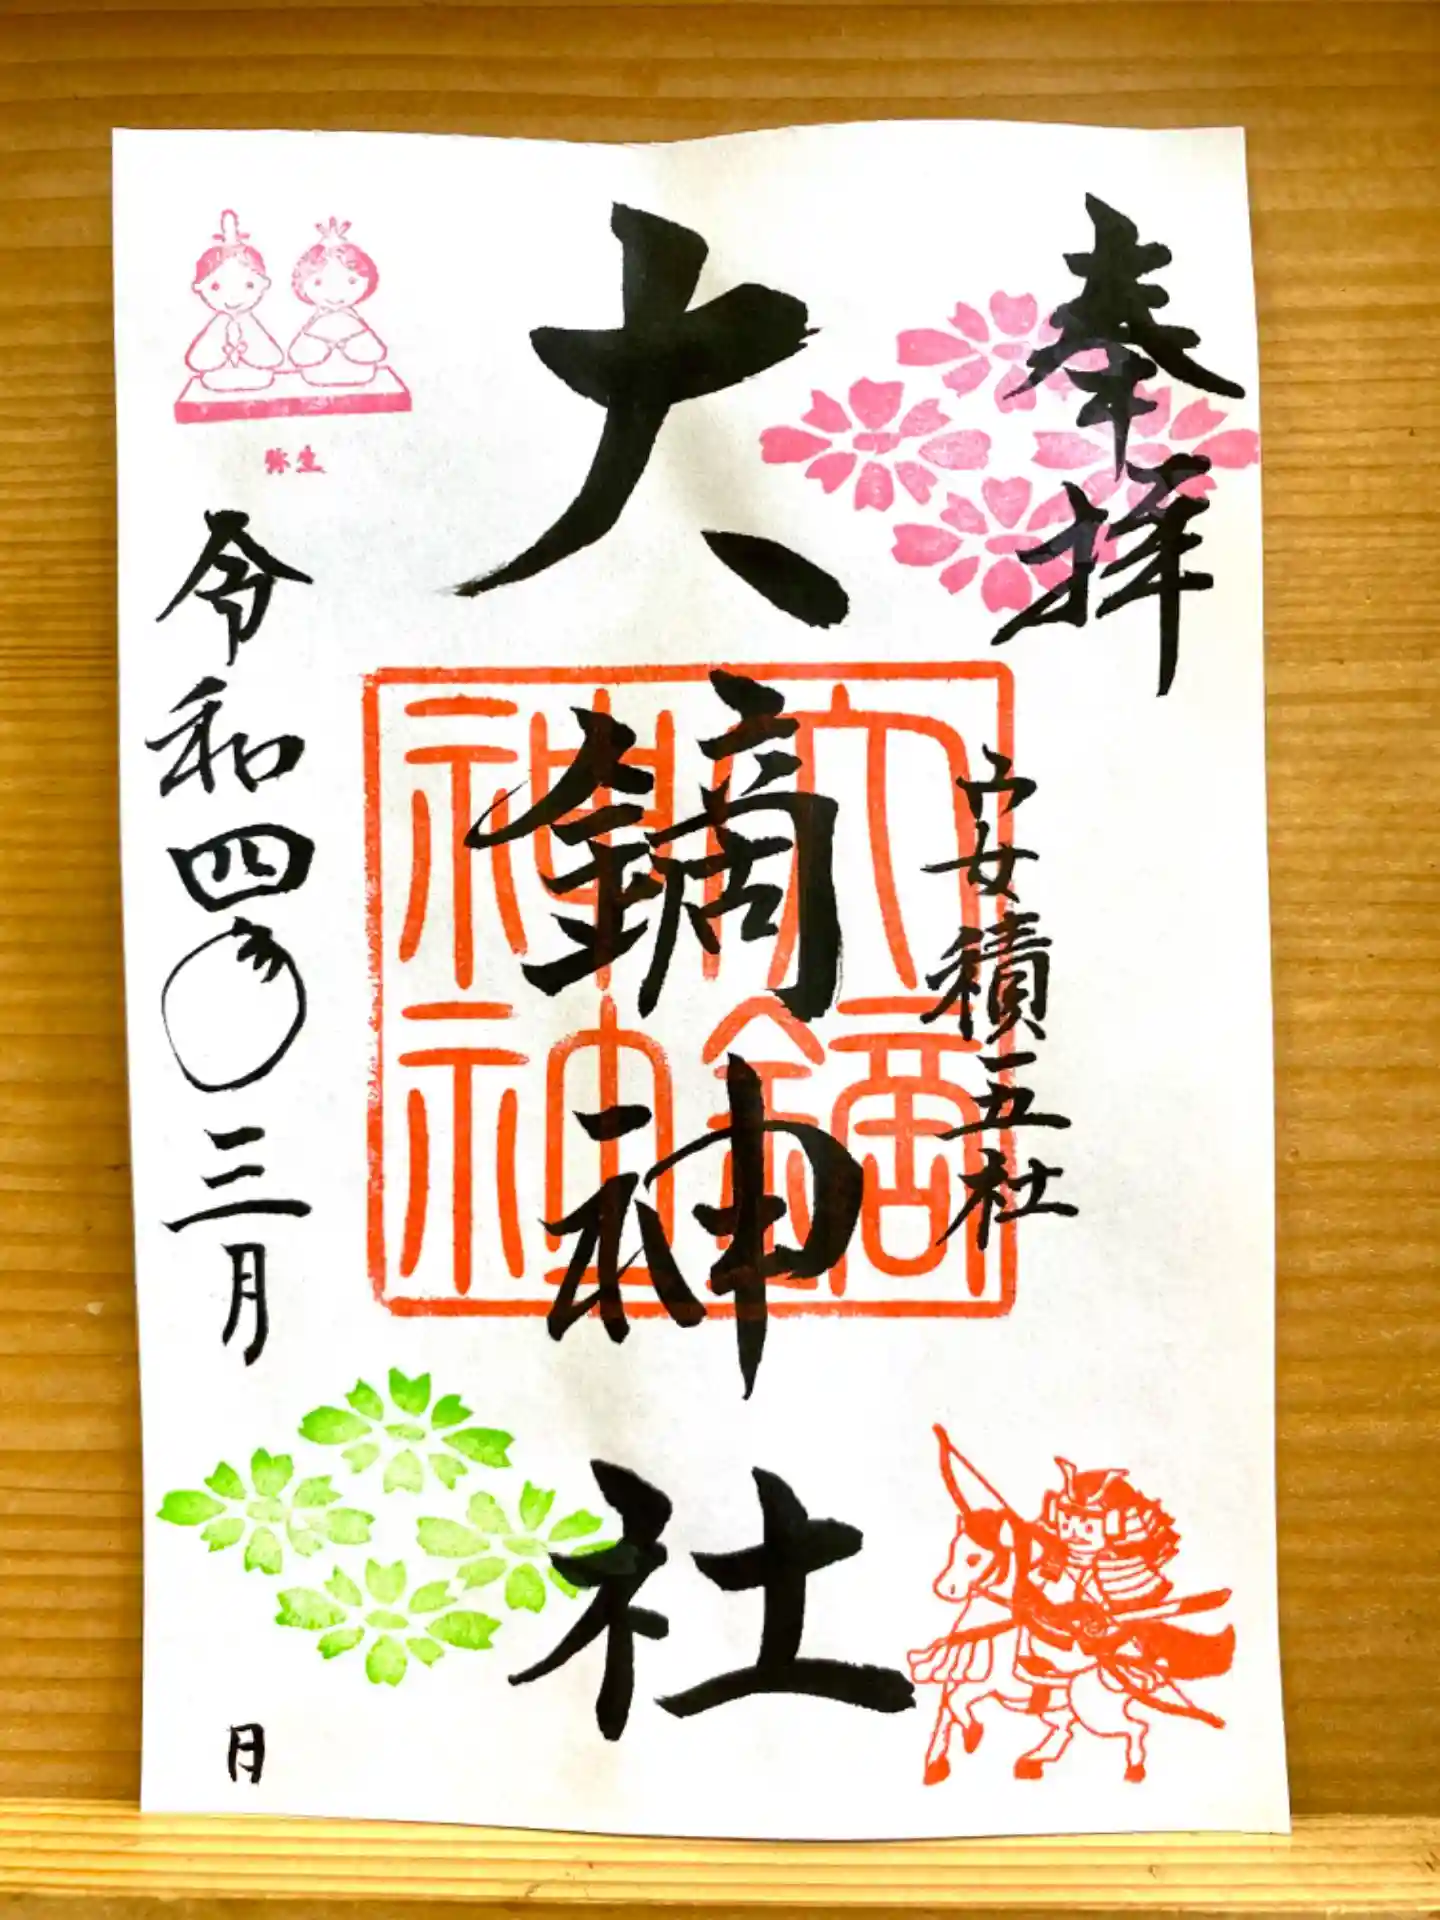 奉拝
安積五社
大鏑神社
大鏑神社
弥生
令和四年三月 日